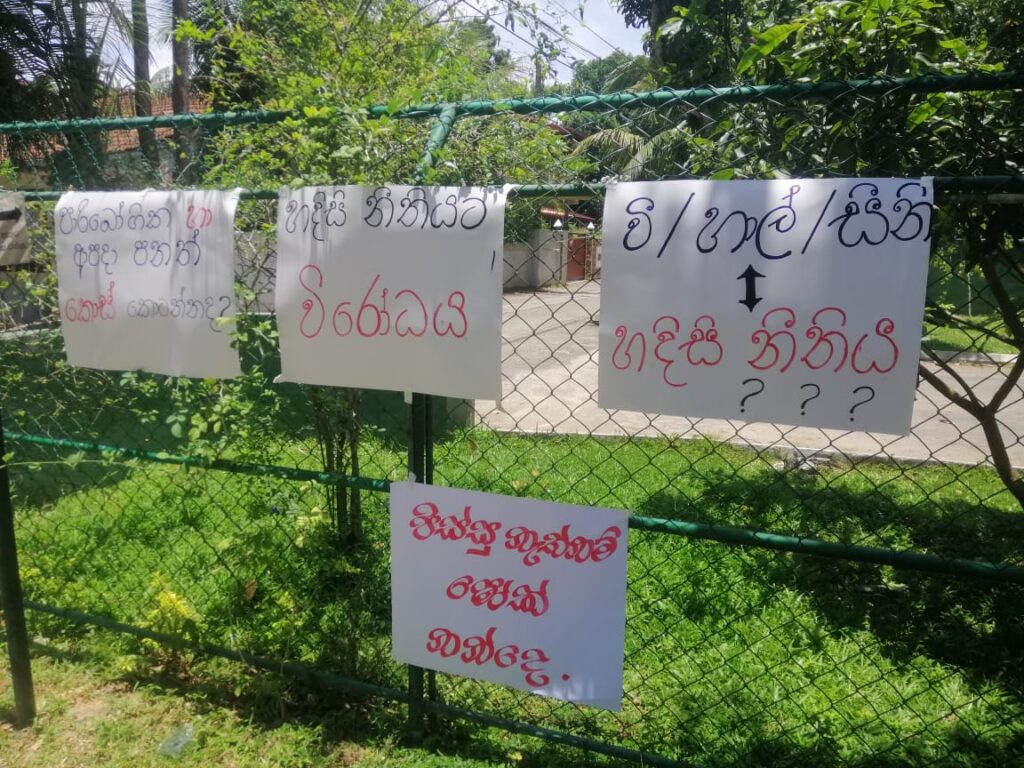 පාරිබෝගික හා
අපදා පනත්
කොස් කොටන්නද?
හදිසි නීතියට
විරෝධය
වී/හාල්/සීනි
හදිසි නීතිය
? ? ?
පිස්සු නැත්තම්
ෂෝක්
නන්දෙ.